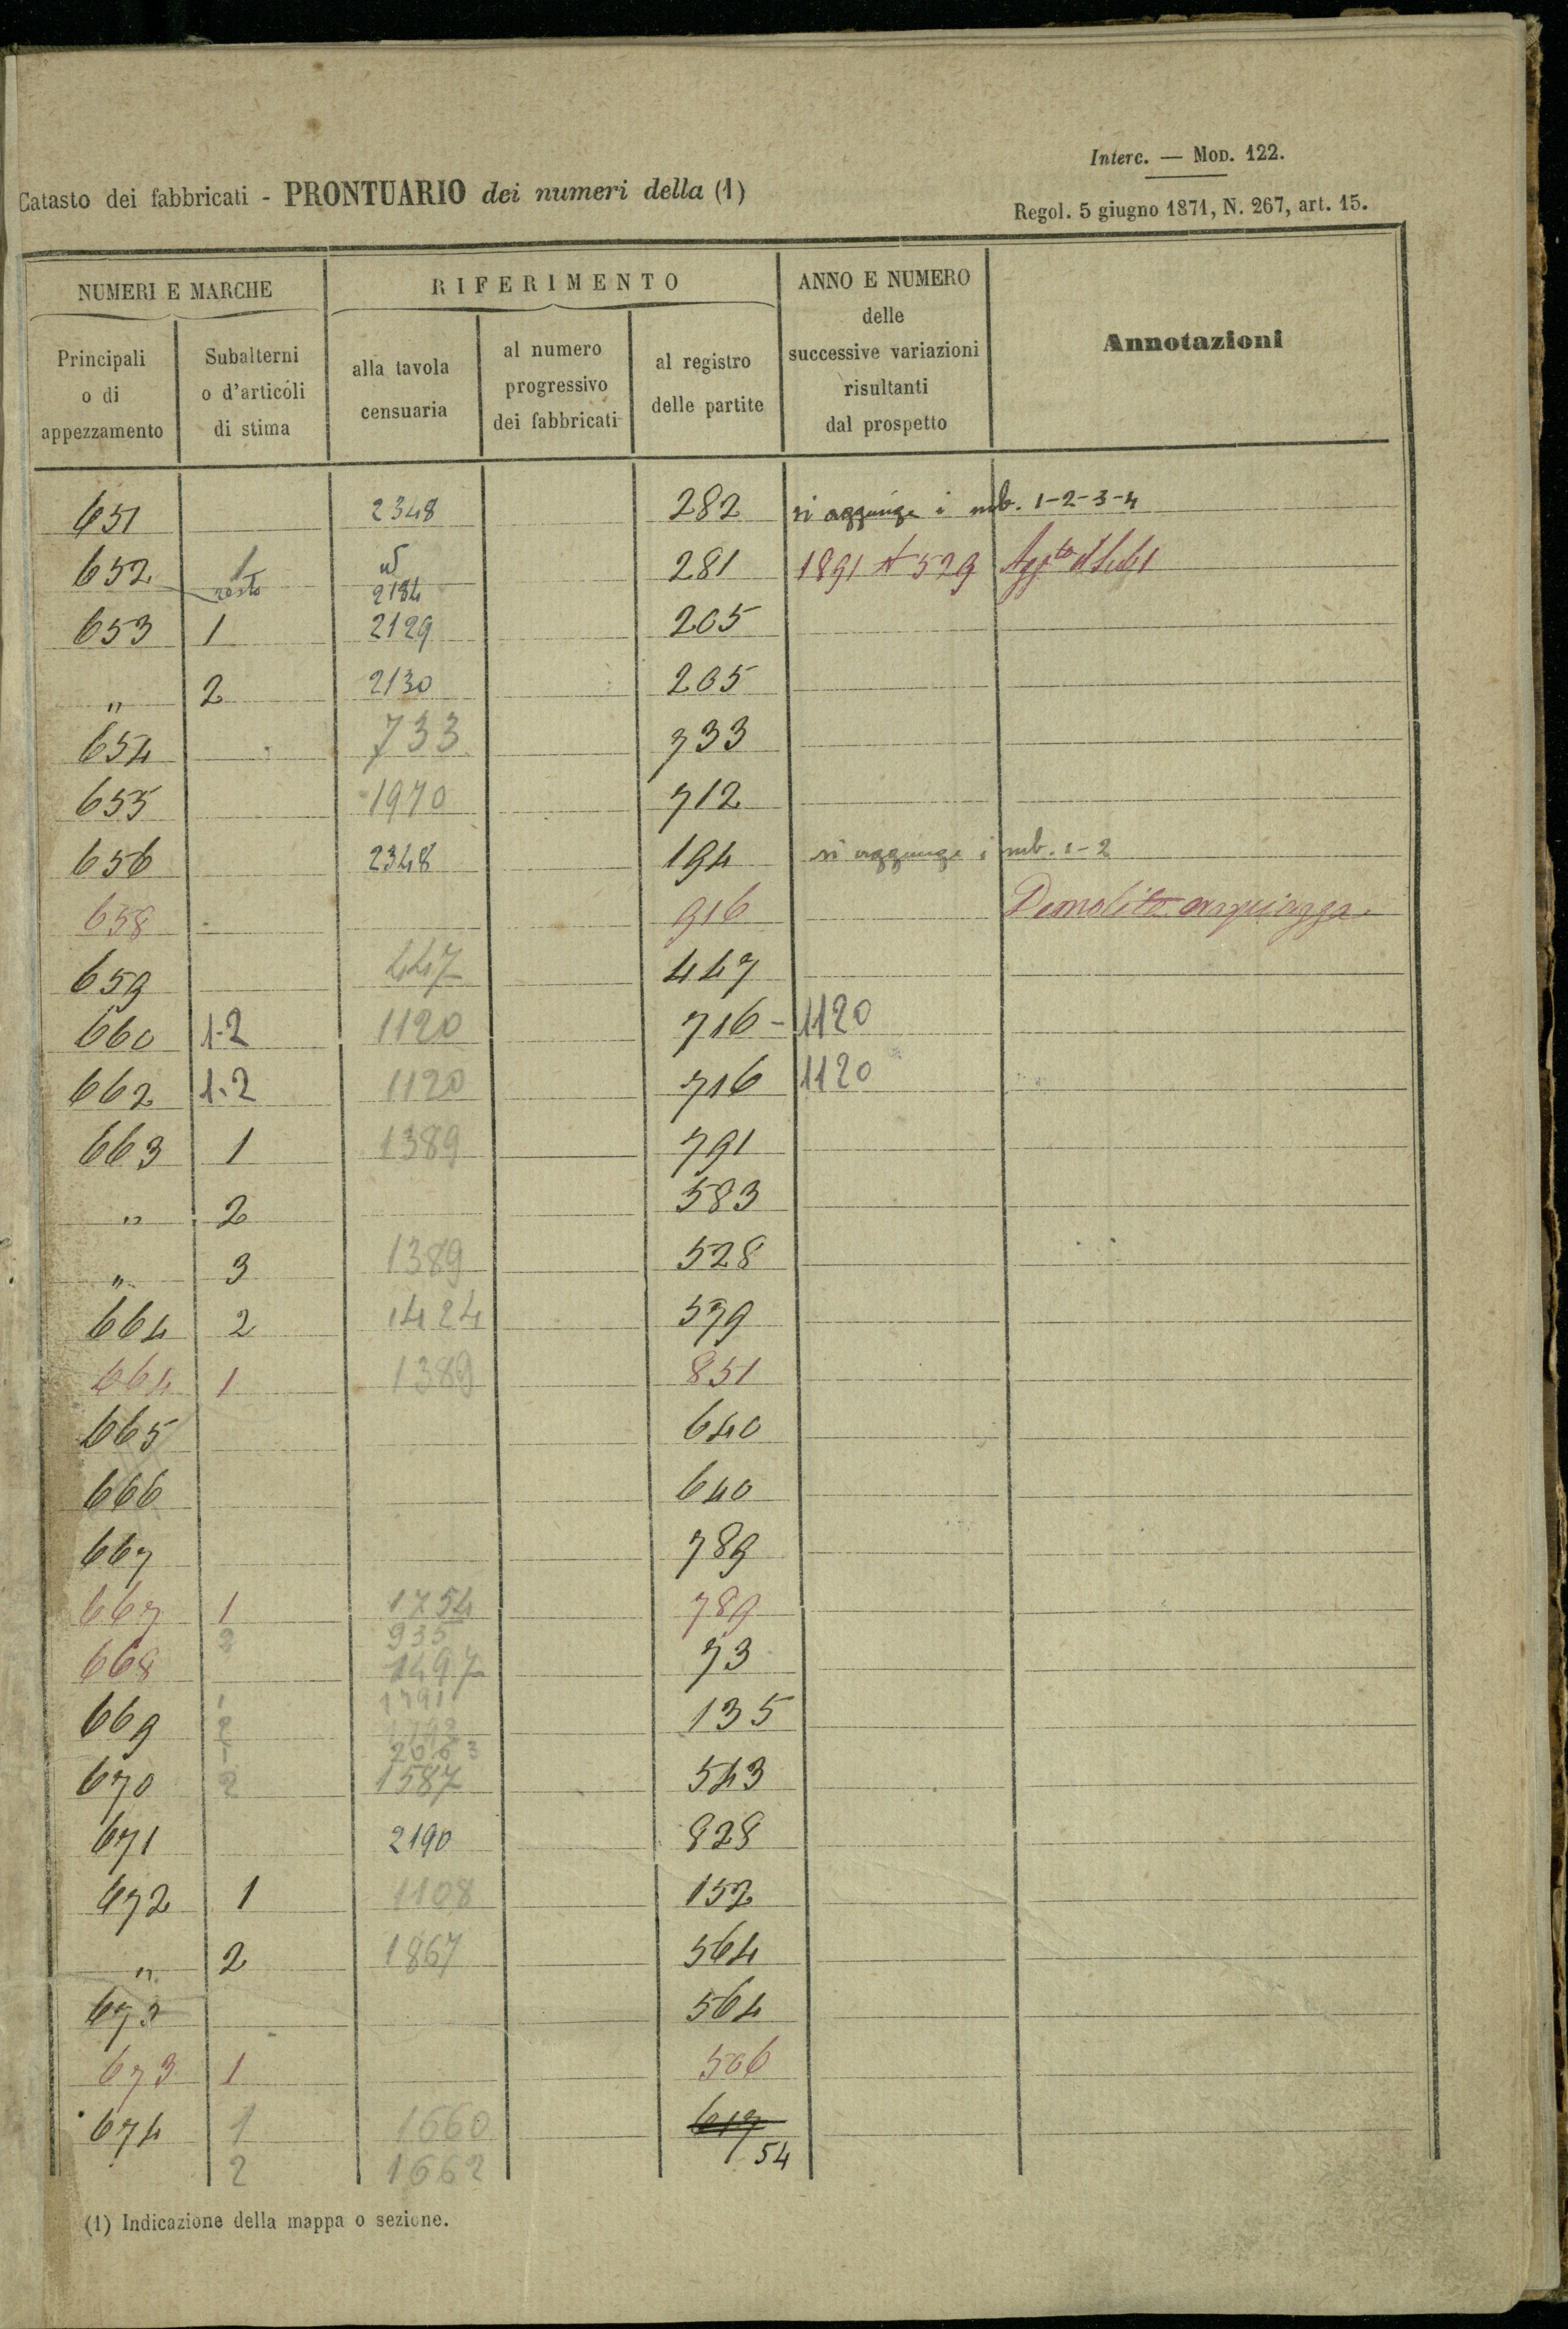 Interc. — Mod. 122.
Catasto dei fabbricati - PRONTUARIO dei numeri della (1)
Regol. 5 giugno 1871, N. 267, art. 15.
NUMERI E MARCHE
RIFERIMENTO
ANNO E NUMERO
delle
successive variazioni
risultanti
dal prospetto
Annotazioni
Principali
o di
appezzamento
Subalterni
o d'articoli
di stima
alla tavola
censuaria
al numero
progressivo
dei fabbricati
al registro
delle partite
651 2348 282 si aggiunge i sub. 1-2-3-4
652 1 281 1891 N 529
resto 2184
653 1 2129 205
" 2 2130 205
654 733 733
655 1970 712
656 2348 194 si aggiunge i sub. 1-2
658 916 Demolito
659 447 447
660 1-2 1120 716 - 1120
662 1-2 1120 716 1120
663 1 1389 791
" 2 583
" 3 1389 528
664 2 1424 579
664 1 1389 851
665 640
666 640
667 789
667 1 1754 789
2 935
668 1497 73
1 1791
669 2 135
1
670 2 1587 543
671 2190 828
672 1 1108 152
" 2 1867 564
673 564
673 1 506
674 1 1660 617
2 1662 54
(1) Indicazione della mappa o sezione.